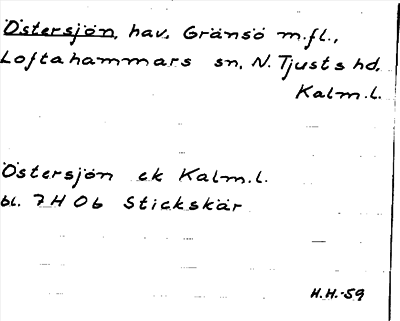 Östersjön, hav, Gränsö m.fl.,
Loftahammars sn, N. Tjusts hd,
Kalm.l.
Östersjön ek Kalm.l.
bl. 7H Ob Stickskär
H.H.-59